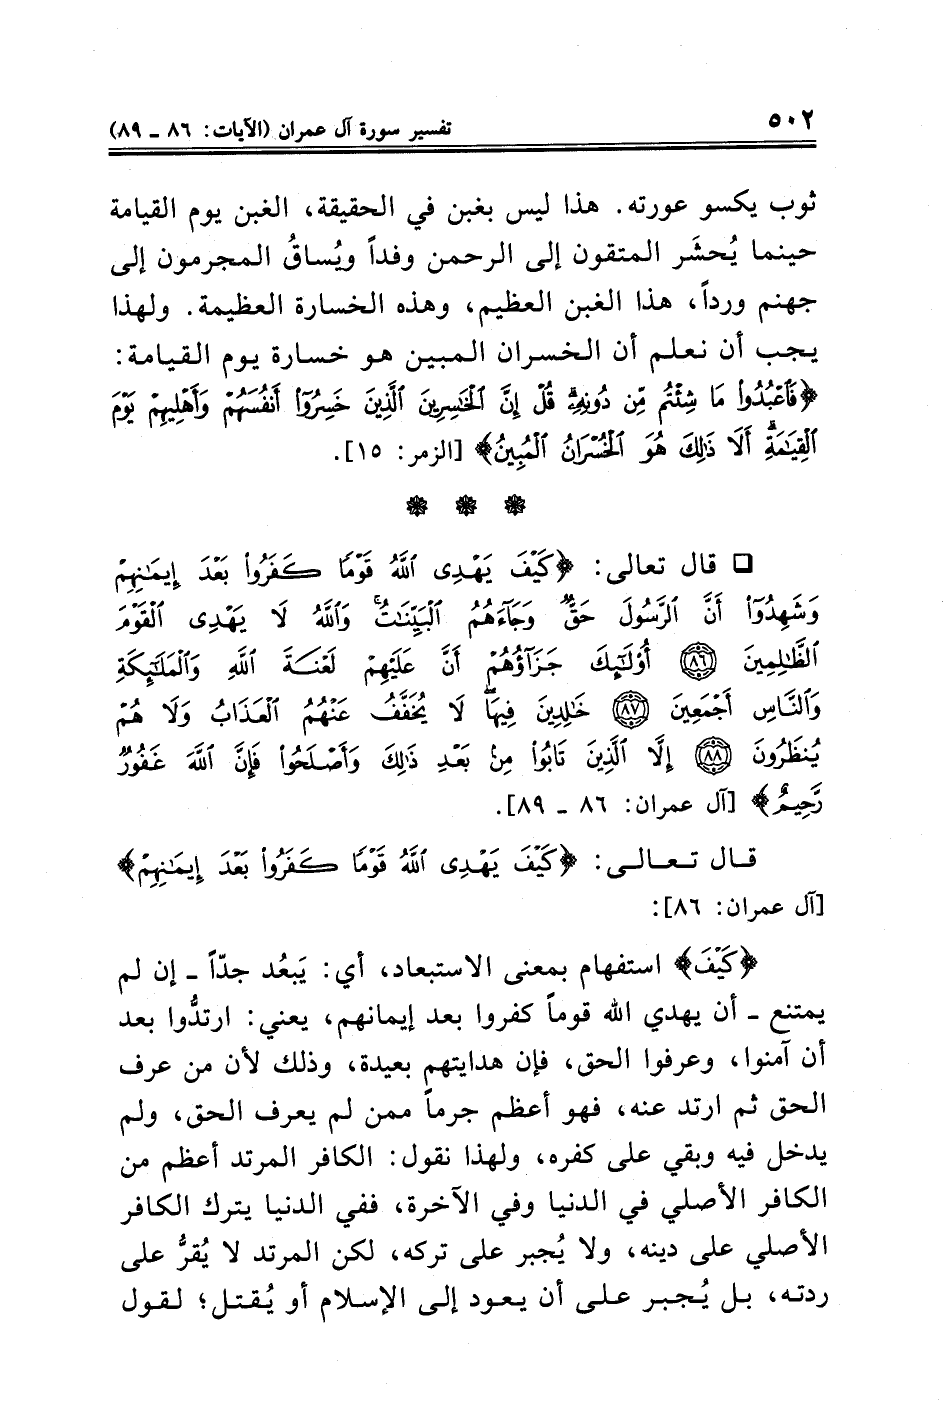 ٥٠٢
تفسير سورة آل عمران (الآيات: ٨٦ ـ ٨٩)
ثوب يكسو عورته. هذا ليس بغبن في الحقيقة، الغبن يوم القيامة
حينما يُحشَر المتقون إلى الرحمن وفداً ويُساقُ المجرمون إلى
جهنم ورداً، هذا الغبن العظيم، وهذه الخسارة العظيمة. ولهذا
يجب أن نعلم أن الخسران المبين هو خسارة يوم القيامة:
﴿فَٱعْبُدُوا۟ مَا شِئْتُم مِّن دُونِهِۦۗ قُلْ إِنَّ ٱلْخَٰسِرِينَ ٱلَّذِينَ خَسِرُوٓا۟ أَنفُسَهُمْ وَأَهْلِيهِمْ يَوْمَ
ٱلْقِيَٰمَةِۗ أَلَا ذَٰلِكَ هُوَ ٱلْخُسْرَانُ ٱلْمُبِينُ﴾ [الزمر: ١٥].
❋ ❋ ❋
❑ قال تعالى: ﴿كَيْفَ يَهْدِى ٱللَّهُ قَوْمًا كَفَرُوا۟ بَعْدَ إِيمَٰنِهِمْ
وَشَهِدُوٓا۟ أَنَّ ٱلرَّسُولَ حَقٌّ وَجَآءَهُمُ ٱلْبَيِّنَٰتُۚ وَٱللَّهُ لَا يَهْدِى ٱلْقَوْمَ
ٱلظَّٰلِمِينَ ٨٦ أُو۟لَٰٓئِكَ جَزَآؤُهُمْ أَنَّ عَلَيْهِمْ لَعْنَةَ ٱللَّهِ وَٱلْمَلَٰٓئِكَةِ
وَٱلنَّاسِ أَجْمَعِينَ ٨٧ خَٰلِدِينَ فِيهَاۖ لَا يُخَفَّفُ عَنْهُمُ ٱلْعَذَابُ وَلَا هُمْ
يُنظَرُونَ ٨٨ إِلَّا ٱلَّذِينَ تَابُوا۟ مِنۢ بَعْدِ ذَٰلِكَ وَأَصْلَحُوا۟ فَإِنَّ ٱللَّهَ غَفُورٌ
رَّحِيمٌ﴾ [آل عمران: ٨٦ ـ ٨٩].
قال تعالى: ﴿كَيْفَ يَهْدِى ٱللَّهُ قَوْمًا كَفَرُوا۟ بَعْدَ إِيمَٰنِهِمْ﴾
[آل عمران: ٨٦]:
﴿كَيْفَ﴾ استفهام بمعنى الاستبعاد، أي: يَبعُد جدّاً ـ إن لم
يمتنع ـ أن يهدي الله قوماً كفروا بعد إيمانهم، يعني: ارتدُّوا بعد
أن آمنوا، وعرفوا الحق، فإن هدايتهم بعيدة، وذلك لأن من عرف
الحق ثم ارتد عنه، فهو أعظم جرماً ممن لم يعرف الحق، ولم
يدخل فيه وبقي على كفره، ولهذا نقول: الكافر المرتد أعظم من
الكافر الأصلي في الدنيا وفي الآخرة، ففي الدنيا يترك الكافر
الأصلي على دينه، ولا يُجبر على تركه، لكن المرتد لا يُقرُّ على
ردته، بل يُجبر على أن يعود إلى الإسلام أو يُقتل؛ لقول